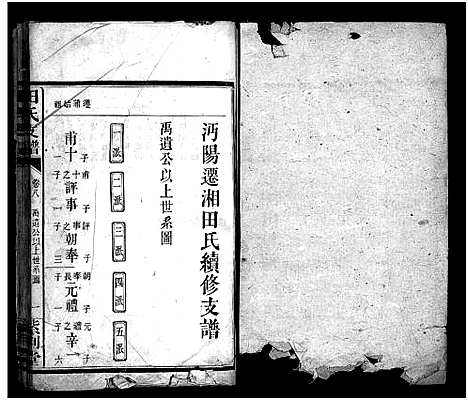 沔陽遷湘田氏續修支譜
禹遺公以上世系圖
一派 二派 三派 四派 五派
遷湘始祖
甫十 子一 甫十之子一
評事 評事之子三
朝奉 朝奉長子一
元禮 元禮之子六
辛一
田氏支譜 卷八 禹遺公以上世系圖 一 紫荆堂